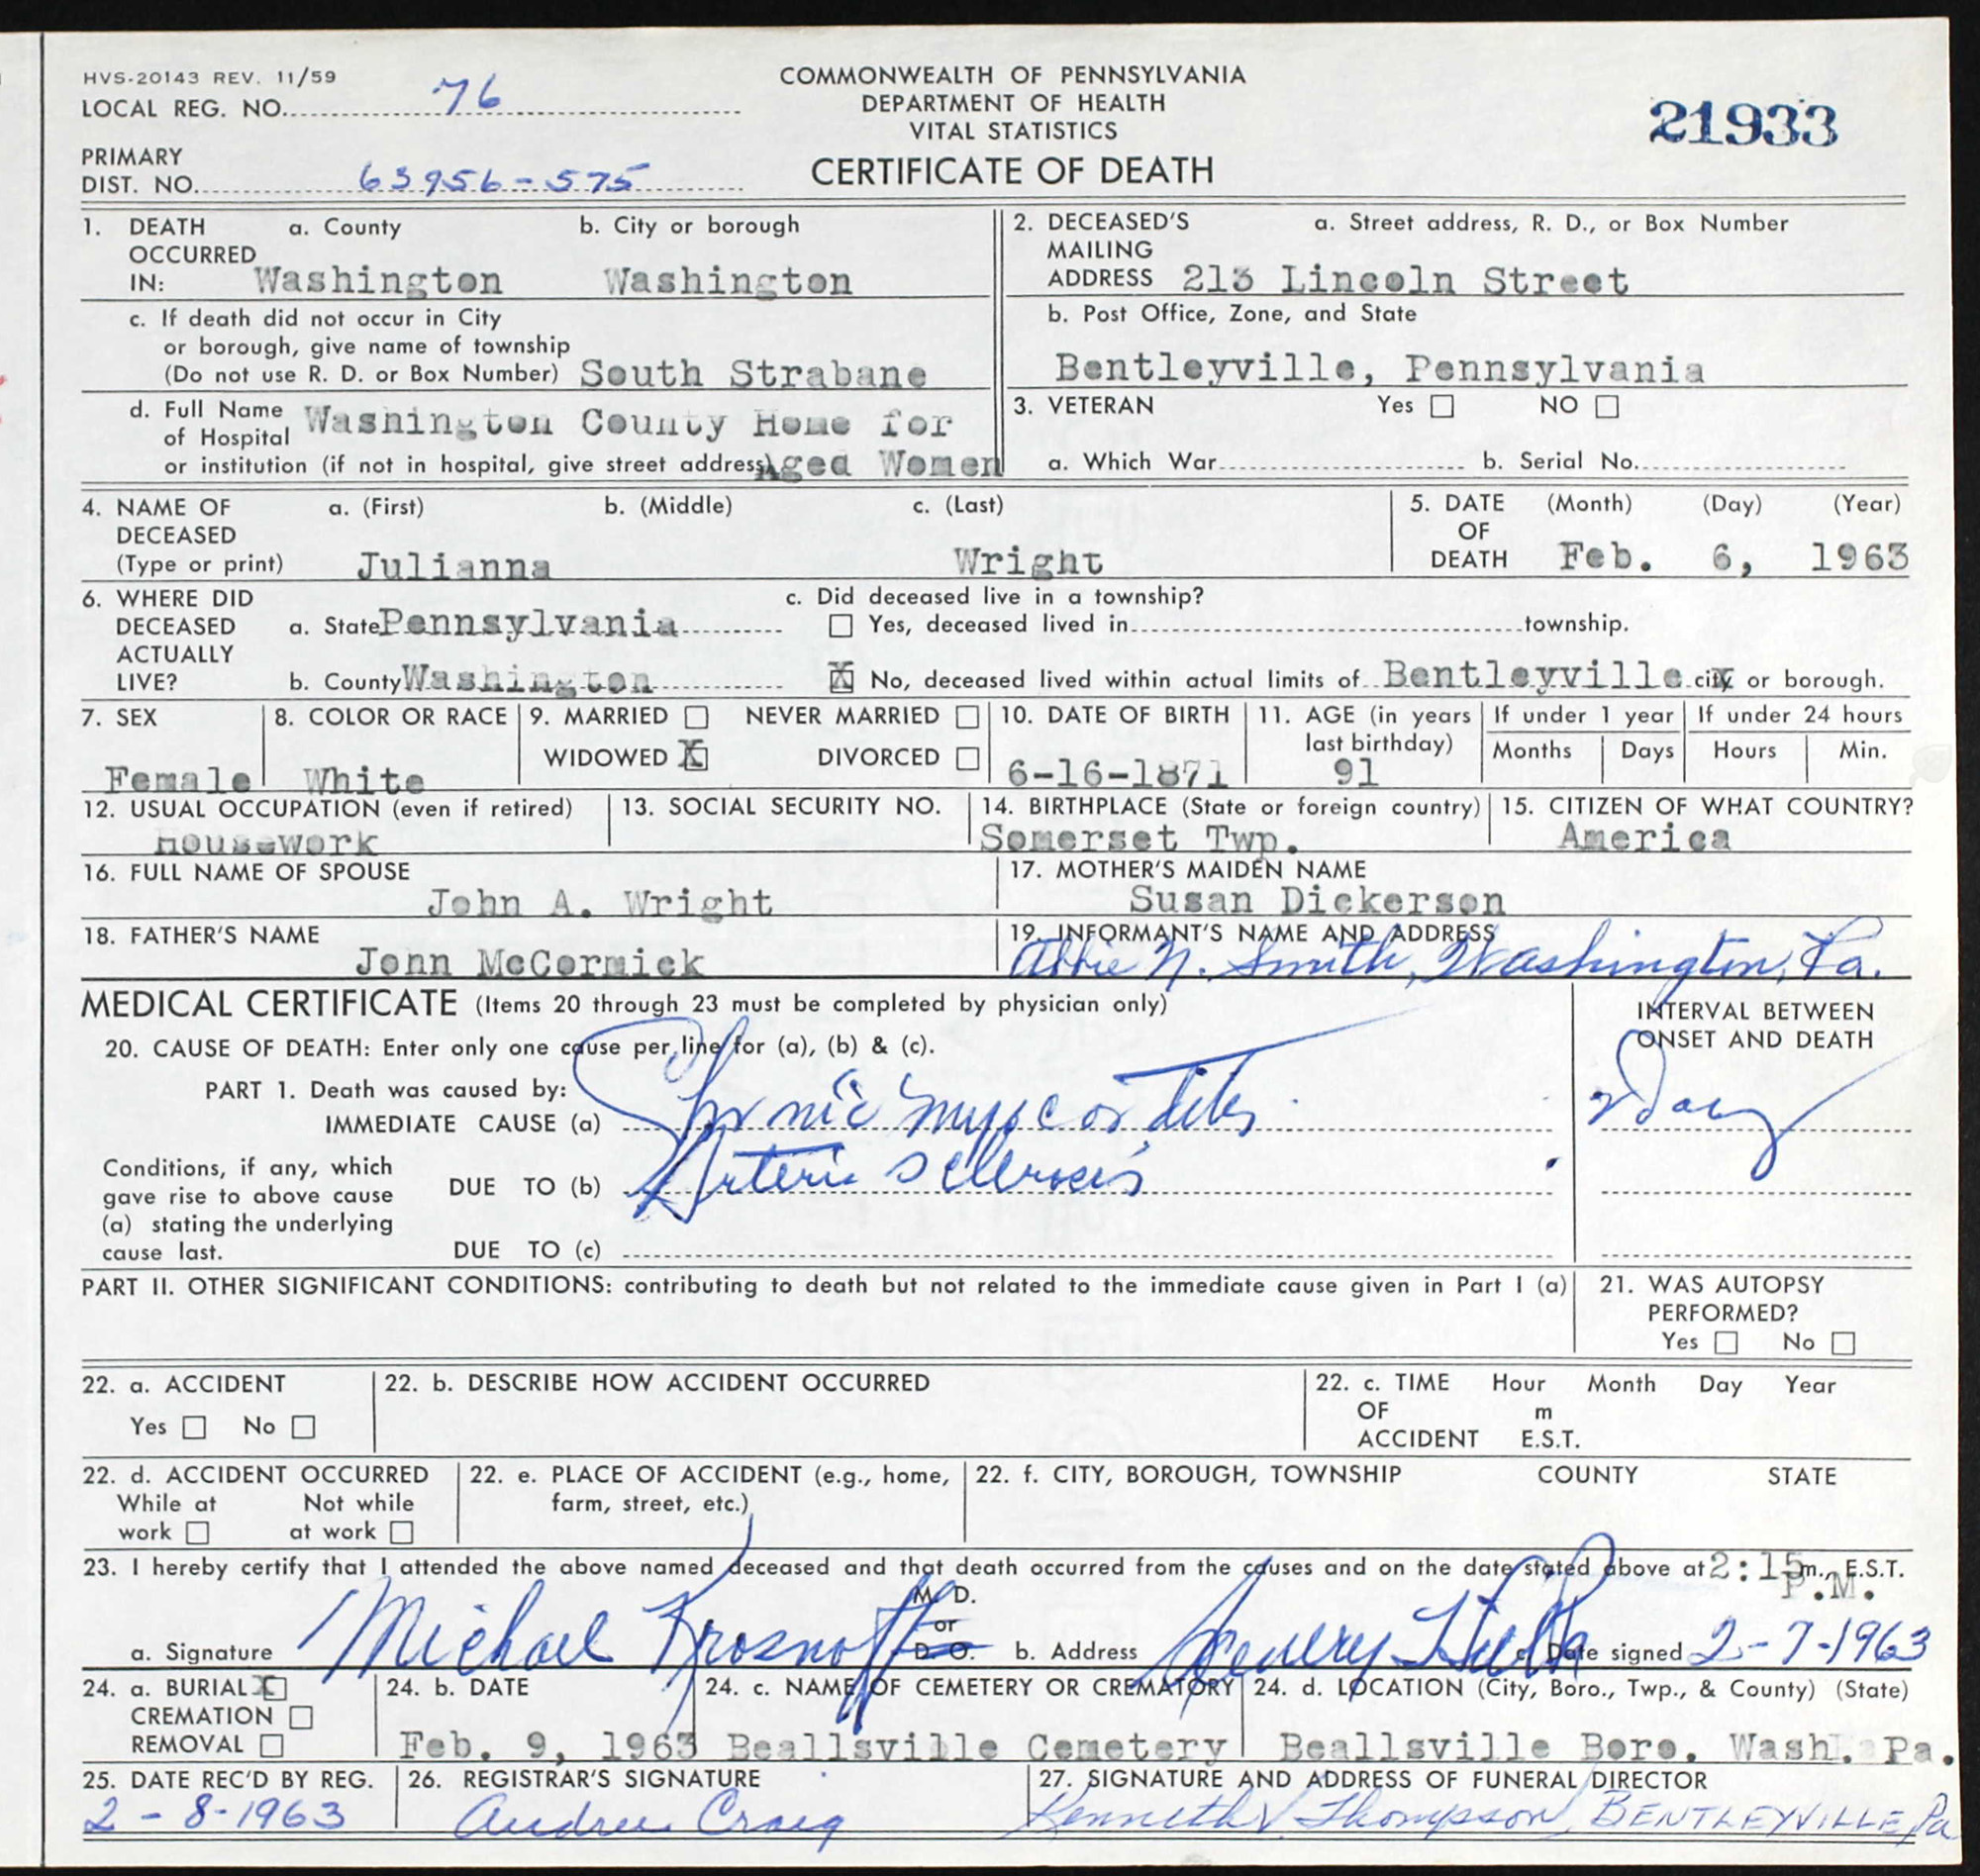 HVS-20143 REV. 11/59
LOCAL REG. NO. 76
COMMONWEALTH OF PENNSYLVANIA
DEPARTMENT OF HEALTH
VITAL STATISTICS
CERTIFICATE OF DEATH
21933
PRIMARY
DIST. NO. 63956-575
1. DEATH OCCURRED IN: a. County Washington b. City or borough Washington
c. If death did not occur in City
or borough, give name of township
(Do not use R. D. or Box Number) South Strabane
d. Full Name Washington County Home for
of Hospital
or institution (if not in hospital, give street address) Aged Women
2. DECEASED'S MAILING ADDRESS a. Street address, R. D., or Box Number
213 Lincoln Street
b. Post Office, Zone, and State
Bentleyville, Pennsylvania
3. VETERAN Yes NO
a. Which War b. Serial No.
4. NAME OF DECEASED (Type or print) a. (First) b. (Middle) c. (Last)
Julianna Wright
5. DATE OF DEATH (Month) (Day) (Year)
Feb. 6, 1963
6. WHERE DID DECEASED ACTUALLY LIVE?
a. State Pennsylvania
b. County Washington
c. Did deceased live in a township?
Yes, deceased lived in township.
X No, deceased lived within actual limits of Bentleyville city or borough.
7. SEX
Female
8. COLOR OR RACE
White
9. MARRIED NEVER MARRIED
WIDOWED X DIVORCED
10. DATE OF BIRTH
6-16-1871
11. AGE (in years
last birthday)
91
If under 1 year
Months Days
If under 24 hours
Hours Min.
12. USUAL OCCUPATION (even if retired)
Housework
13. SOCIAL SECURITY NO.
14. BIRTHPLACE (State or foreign country)
Somerset Twp.
15. CITIZEN OF WHAT COUNTRY?
America
16. FULL NAME OF SPOUSE
John A. Wright
17. MOTHER'S MAIDEN NAME
Susan Dickerson
18. FATHER'S NAME
John McCormick
19. INFORMANT'S NAME AND ADDRESS
Abbie N. Smith, Washington, Pa.
MEDICAL CERTIFICATE (Items 20 through 23 must be completed by physician only)
20. CAUSE OF DEATH: Enter only one cause per line for (a), (b) & (c).
INTERVAL BETWEEN
ONSET AND DEATH
PART 1. Death was caused by:
IMMEDIATE CAUSE (a) Chronic myocarditis
Conditions, if any, which
gave rise to above cause
(a) stating the underlying
cause last.
DUE TO (b) Arterio sclerosis
DUE TO (c)
PART II. OTHER SIGNIFICANT CONDITIONS: contributing to death but not related to the immediate cause given in Part I (a)
21. WAS AUTOPSY
PERFORMED?
Yes No
22. a. ACCIDENT
Yes No
22. b. DESCRIBE HOW ACCIDENT OCCURRED
22. c. TIME OF ACCIDENT Hour Month Day Year
m
E.S.T.
22. d. ACCIDENT OCCURRED
While at work Not while at work
22. e. PLACE OF ACCIDENT (e.g., home,
farm, street, etc.)
22. f. CITY, BOROUGH, TOWNSHIP COUNTY STATE
23. I hereby certify that I attended the above named deceased and that death occurred from the causes and on the date stated above at 2:15 m., E.S.T.
P.M.
a. Signature Michael Krosnoff M. D. or D. O. b. Address Scenery Hill Pa c. Date signed 2-7-1963
24. a. BURIAL X
CREMATION
REMOVAL
24. b. DATE
Feb. 9, 1963
24. c. NAME OF CEMETERY OR CREMATORY
Beallsville Cemetery
24. d. LOCATION (City, Boro., Twp., & County) (State)
Beallsville Boro. Wash. Pa.
25. DATE REC'D BY REG.
2-8-1963
26. REGISTRAR'S SIGNATURE
Andrew Craig
27. SIGNATURE AND ADDRESS OF FUNERAL DIRECTOR
Kenneth V. Thompson, BENTLEYVILLE, Pa